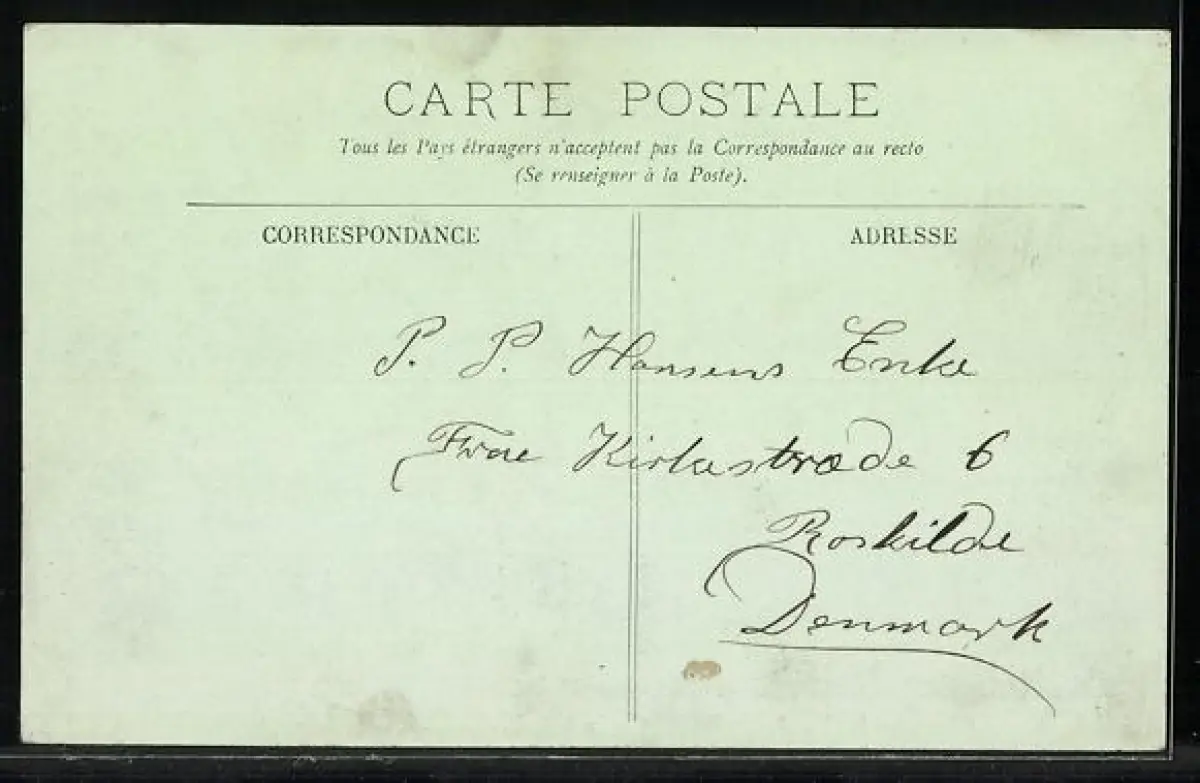 CARTE POSTALE
Tous les Pays étrangers n'acceptent pas la Correspondance au recto
(Se renseigner à la Poste).
CORRESPONDANCE
ADRESSE
P. P. Hansens Enke
Kirkestræde 6
Roskilde
Denmark